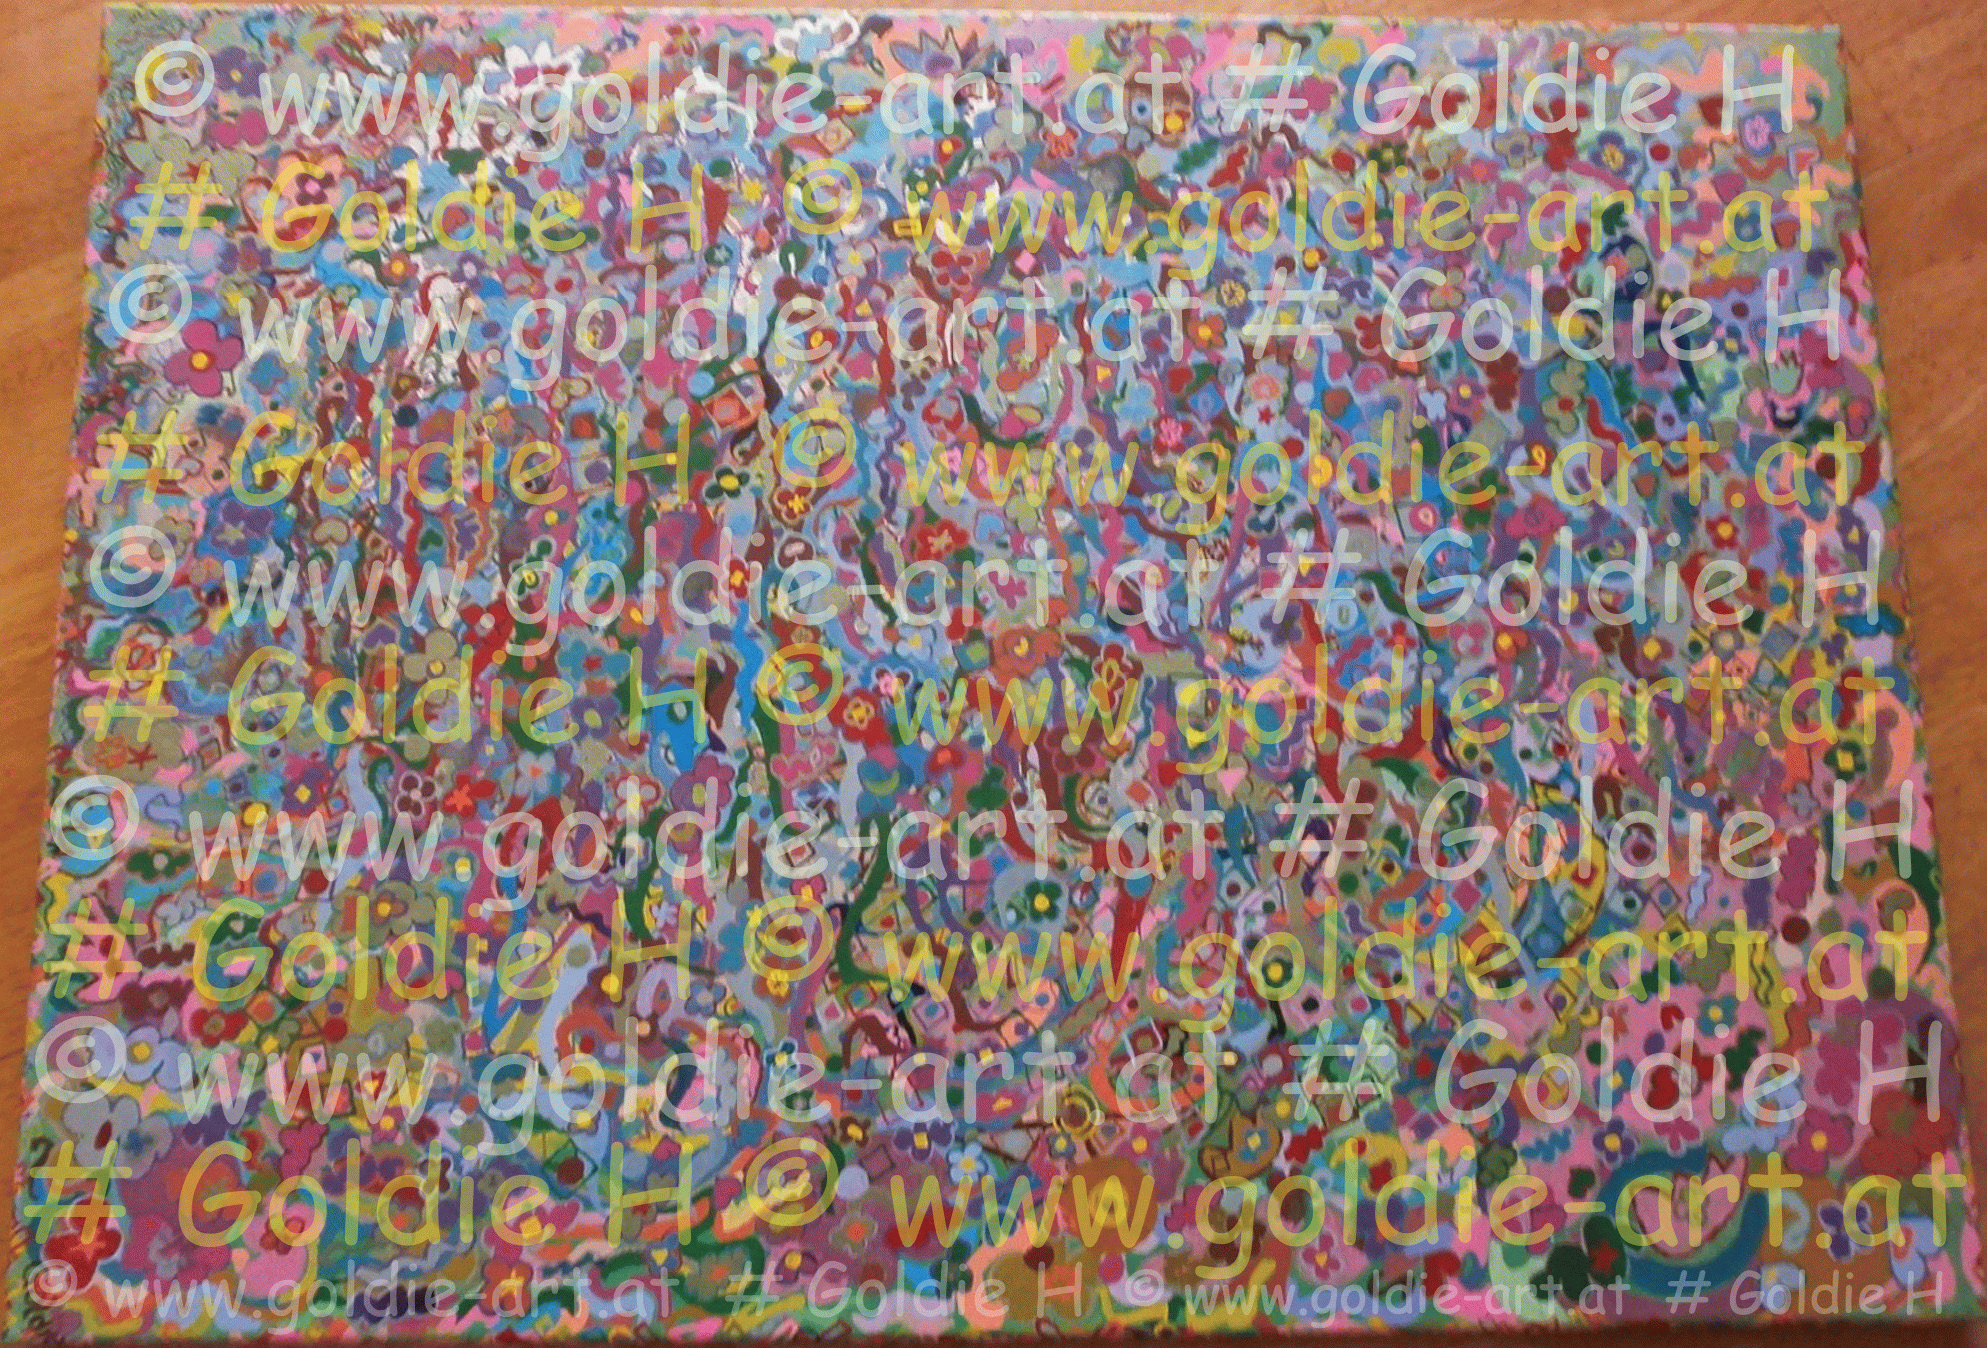 © www.goldie-art.at # Goldie H
# Goldie H © www.goldie-art.at
© www.goldie-art.at # Goldie H
# Goldie H © www.goldie-art.at
© www.goldie-art.at # Goldie H
# Goldie H © www.goldie-art.at
© www.goldie-art.at # Goldie H
# Goldie H © www.goldie-art.at
© www.goldie-art.at # Goldie H
# Goldie H © www.goldie-art.at
© www.goldie-art.at # Goldie H © www.goldie-art.at # Goldie H